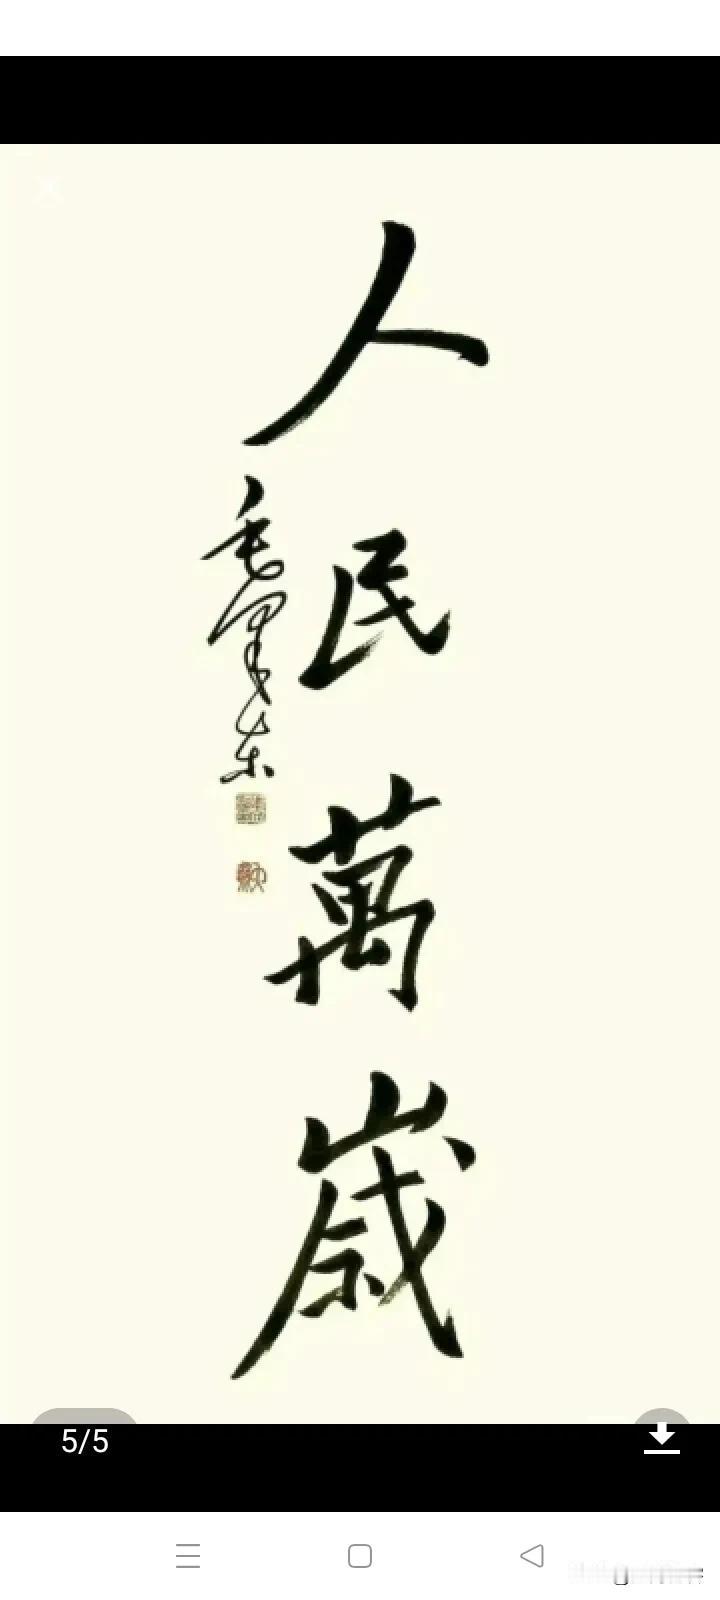 人民萬歲
毛澤东
5/5